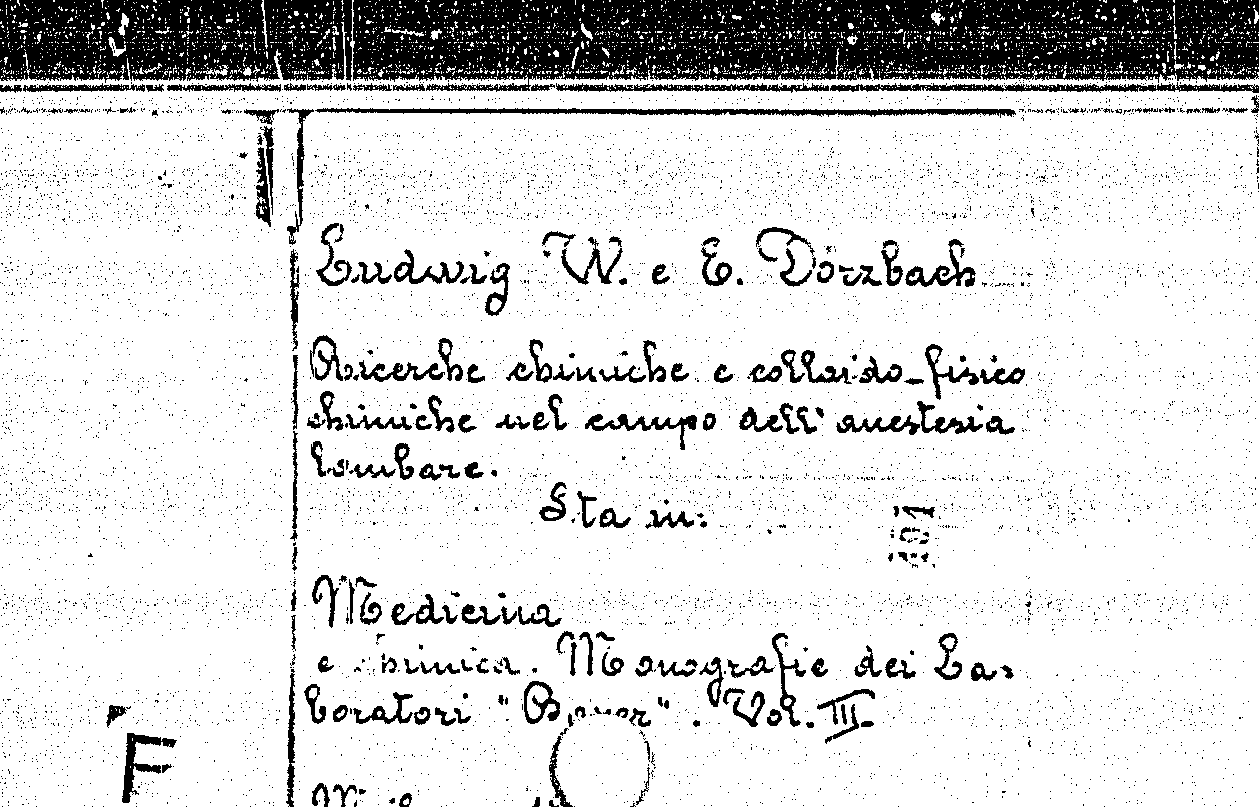 Ludwig W. e E. Dörzbach
Ricerche chimiche e colloido-fisico
chimiche nel campo dell'anestesia
lombare.
Sta in:
101
Medicina
e chimica. Monografie dei La=
boratori "Bayer". Vol. III.
F